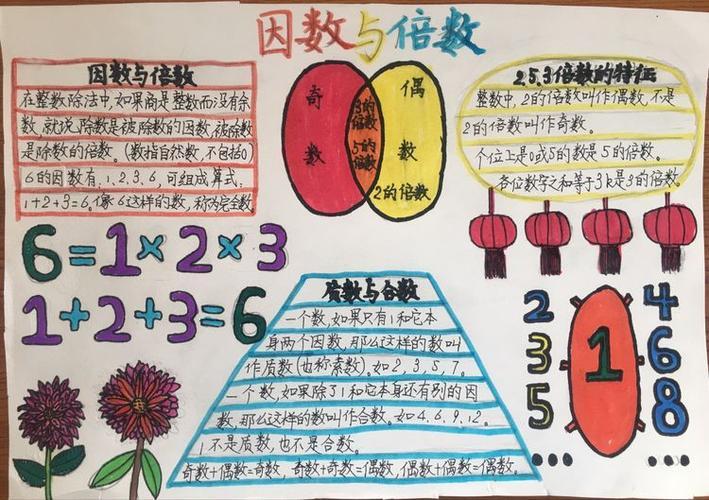 因数与倍数
因数与倍数
在整数除法中,如果商是整数而没有余
数,就说,除数是被除数的因数,被除数
是除数的倍数。(数指自然数,不包括0)
6的因数有,1、2、3、6,可组成算式:
1+2+3=6。像6这样的数,称为完全数
奇
数
3的
倍数
5的
倍数
偶
数
2的倍数
2.5.3倍数的特征
整数中,2的倍数叫作偶数,不是
2的倍数叫作奇数。
个位上是0或5的数是5的倍数。
各位数字之和等于3k是3的倍数。
6=1×2×3
1+2+3=6
质数与合数
一个数,如果只有1和它本
身两个因数,那么这样的数叫
作质数(也称素数),如2,3,5,7。
一个数,如果除了1和它本身还有别的因
数,那么这样的数叫作合数。如4,6,9,12。
1不是质数,也不是合数。
奇数+偶数=奇数,奇数+奇数=偶数,偶数+偶数=偶数。
2
3
5
1
4
6
8